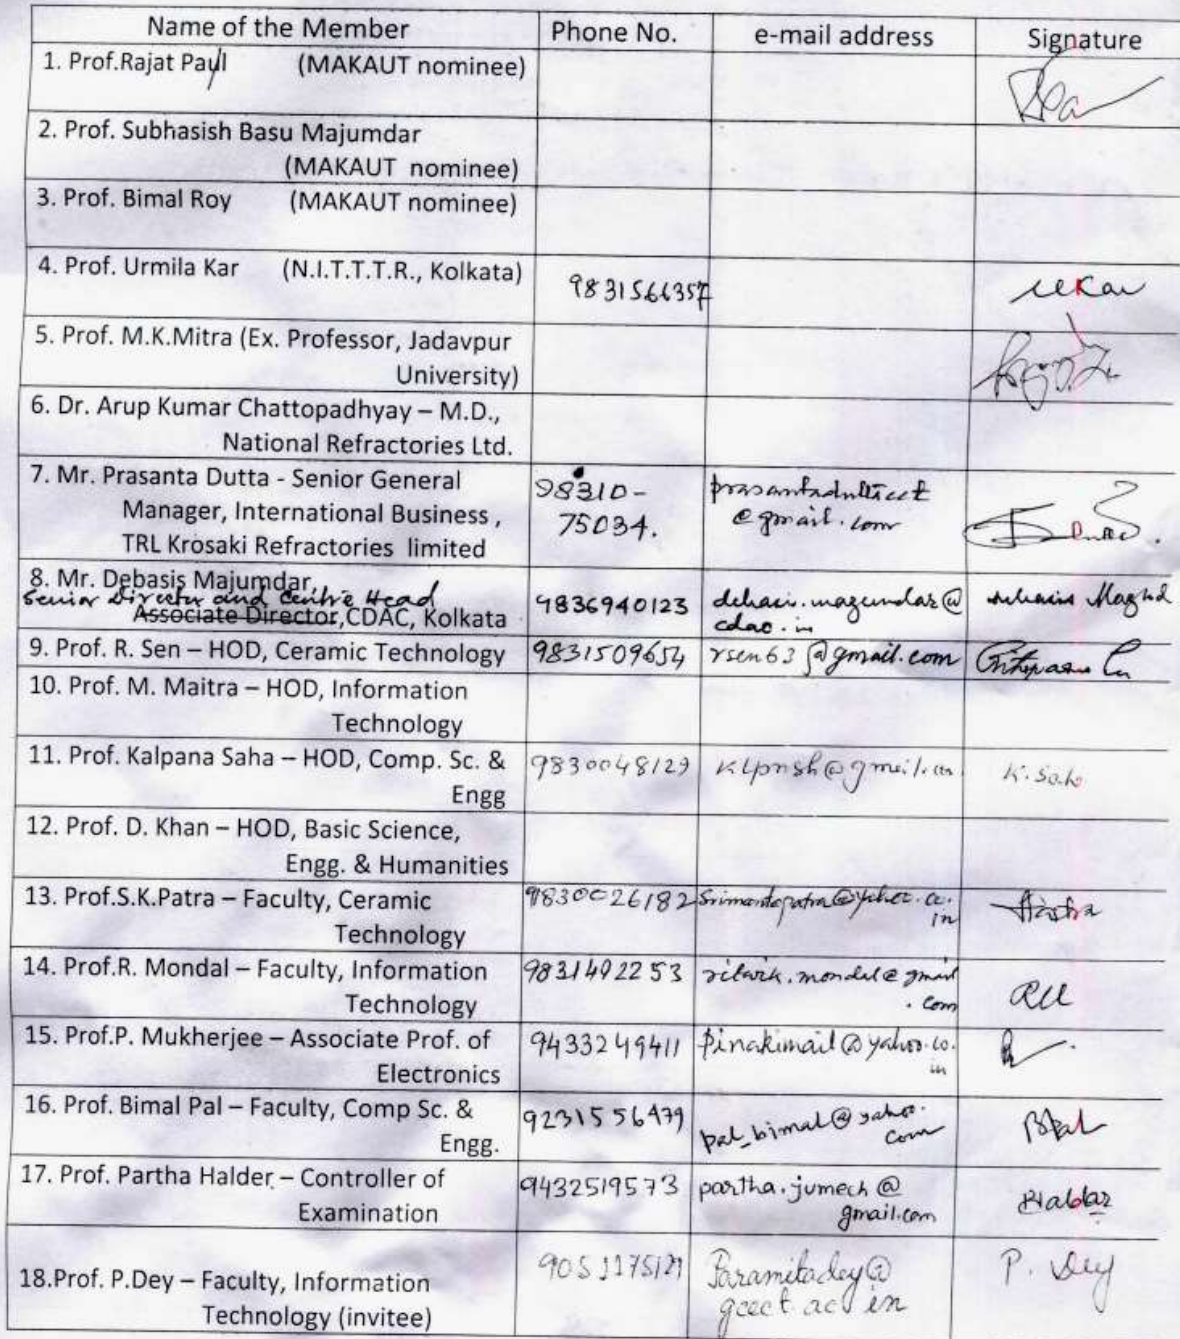 Name of the Member Phone No. e-mail address Signature
1. Prof.Rajat Paul (MAKAUT nominee)
2. Prof. Subhasish Basu Majumdar
(MAKAUT nominee)
3. Prof. Bimal Roy (MAKAUT nominee)
4. Prof. Urmila Kar (N.I.T.T.T.R., Kolkata) 9831566357 UKar
5. Prof. M.K.Mitra (Ex. Professor, Jadavpur
University)
6. Dr. Arup Kumar Chattopadhyay – M.D.,
National Refractories Ltd.
7. Mr. Prasanta Dutta - Senior General 98310- 
Manager, International Business , 75034. @gmail.com
TRL Krosaki Refractories limited
8. Mr. Debasis Majumdar,
Senior Director and Centre Head
Associate Director,CDAC, Kolkata 9836940123 debasis.mazumdar@
cdac.in
9. Prof. R. Sen – HOD, Ceramic Technology 9831509654 rsen63@gmail.com
10. Prof. M. Maitra – HOD, Information
Technology
11. Prof. Kalpana Saha – HOD, Comp. Sc. & 9830048129 klpnsh@gmail.com K. Saha
Engg
12. Prof. D. Khan – HOD, Basic Science,
Engg. & Humanities
13. Prof.S.K.Patra – Faculty, Ceramic 9830026182 Srimantapatra@yahoo.co.
in
Technology
14. Prof.R. Mondal – Faculty, Information 9831492253 ritwik.mondal@gmail
.com
Technology
15. Prof.P. Mukherjee – Associate Prof. of 9433249411 pinakimail@yahoo.co.
in
Electronics
16. Prof. Bimal Pal – Faculty, Comp Sc. & 9231556479 pal_bimal@yahoo.
com BPal
Engg.
17. Prof. Partha Halder – Controller of 9432519573 partha.jumech@
gmail.com PHaldar
Examination
18.Prof. P.Dey – Faculty, Information Paramitadey@
gcect.ac.in P. Dey
Technology (invitee)